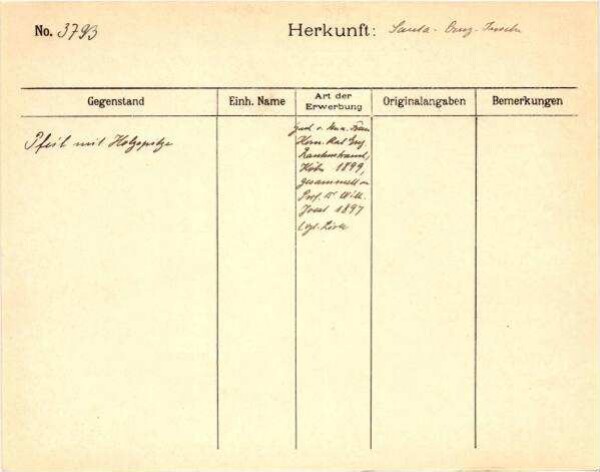 No. 3793
Herkunft: Santa-Cruz-Inseln
Gegenstand
Einh. Name
Art der
Erwerbung
Originalangaben
Bemerkungen
Pfeil mit Holzspitze
Gesch. v. Frau
Kom. Rat Eug.
Rautenstrauch,
Köln 1899,
Gesammelt v.
Prof. Dr Wilh.
Joest 1897
(vgl. Liste